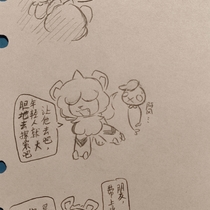 让他去吧，
年轻人就大
胆地去探索吧
朋友，
带上